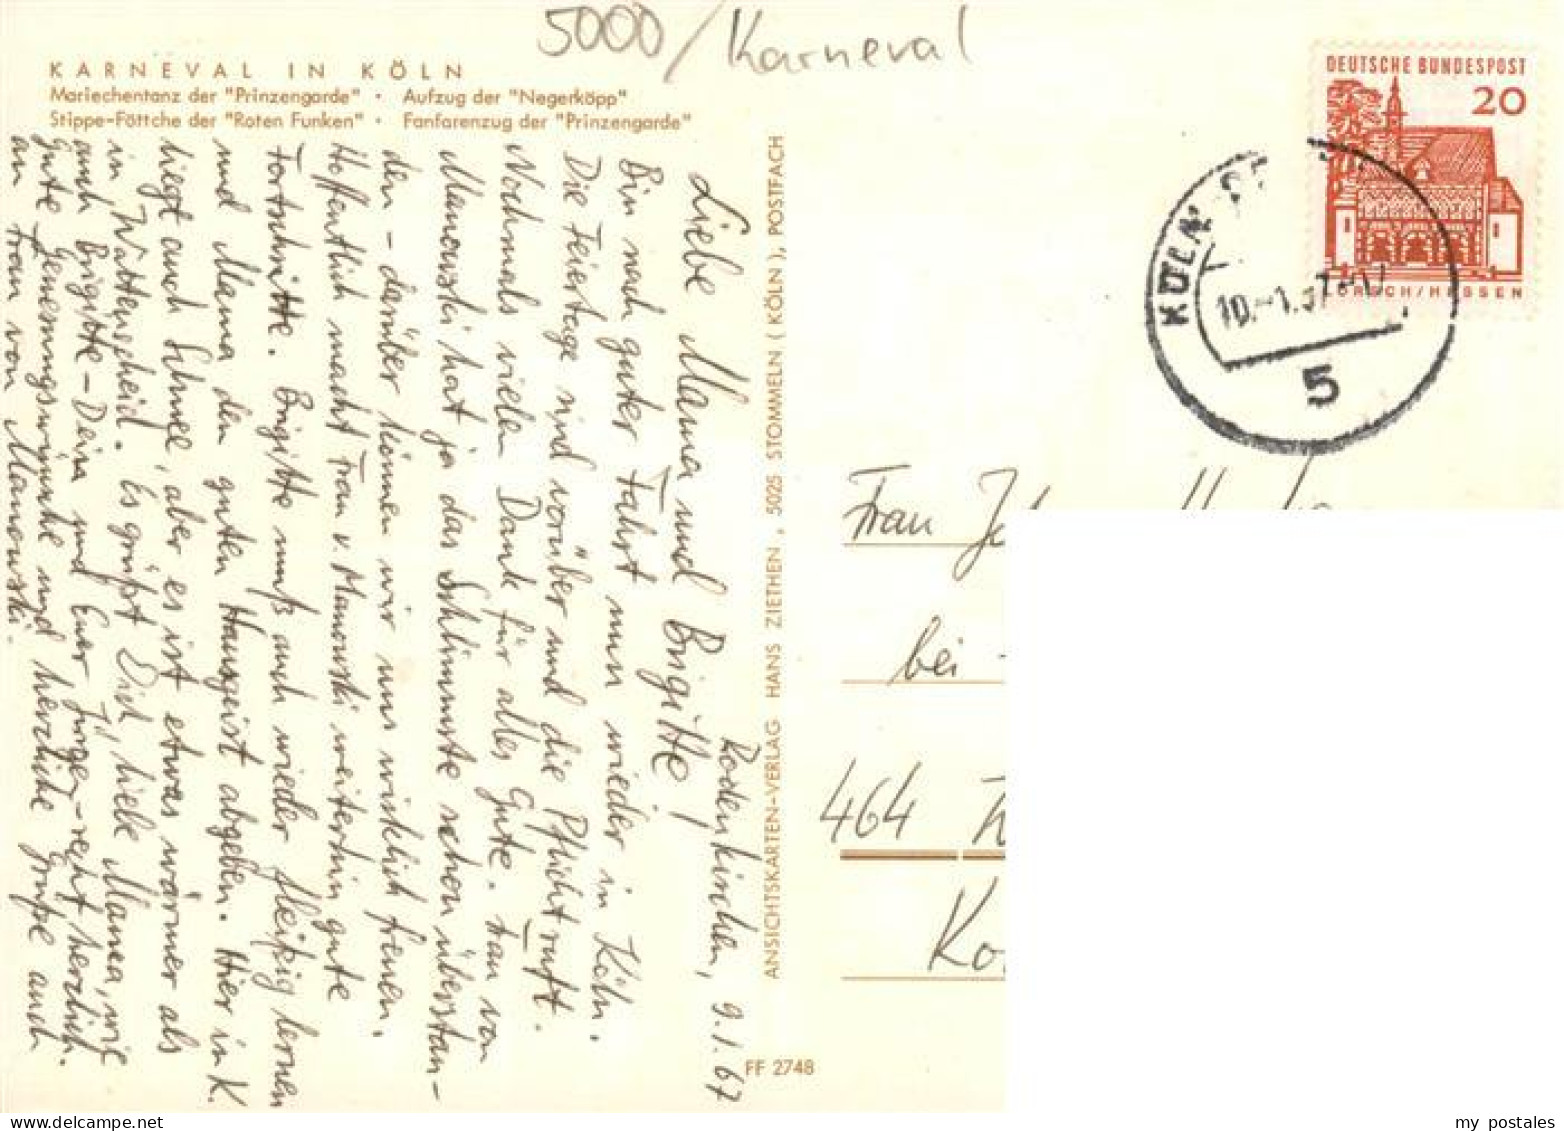 5000/Karneval
KARNEVAL IN KÖLN
Mariechentanz der "Prinzengarde" · Aufzug der "Negerköpp"
Stippe-Föttche der "Roten Funken" · Fanfarenzug der "Prinzengarde"
DEUTSCHE BUNDESPOST
20
LORSCH/HESSEN
KÖLN
10.-1.67
5
Rodenkirchen, 9.1.67
Liebe Mama und Brigitte!
Bin nach guter Fahrt nun wieder in Köln.
Die Feiertage sind vorüber und die Pflicht ruft.
Nochmals vielen Dank für alles Gute. Frau von
Manowski hat ja das Schlimmste schon überstan-
den - darüber können wir uns wirklich freuen.
Hoffentlich macht Frau v. Manowski weiterhin gute
Fortschritte. Brigitte muß auch wieder fleißig lernen
und Mama den guten Hausgeist abgeben. Hier in K.
liegt auch Schnee, aber es ist etwas wärmer als
in Wattenscheid. Es grüßt Dich, liebe Mama, wie
auch Brigitte - Deira und Euer Jürgen - recht herzlich.
gute Genesungswünsche und herzliche Grüße auch
an Frau von Manowski.
ANSICHTSKARTEN-VERLAG HANS ZIETHEN, 5025 STOMMELN (KÖLN), POSTFACH
FF 2748
Frau
bei
464
my postales